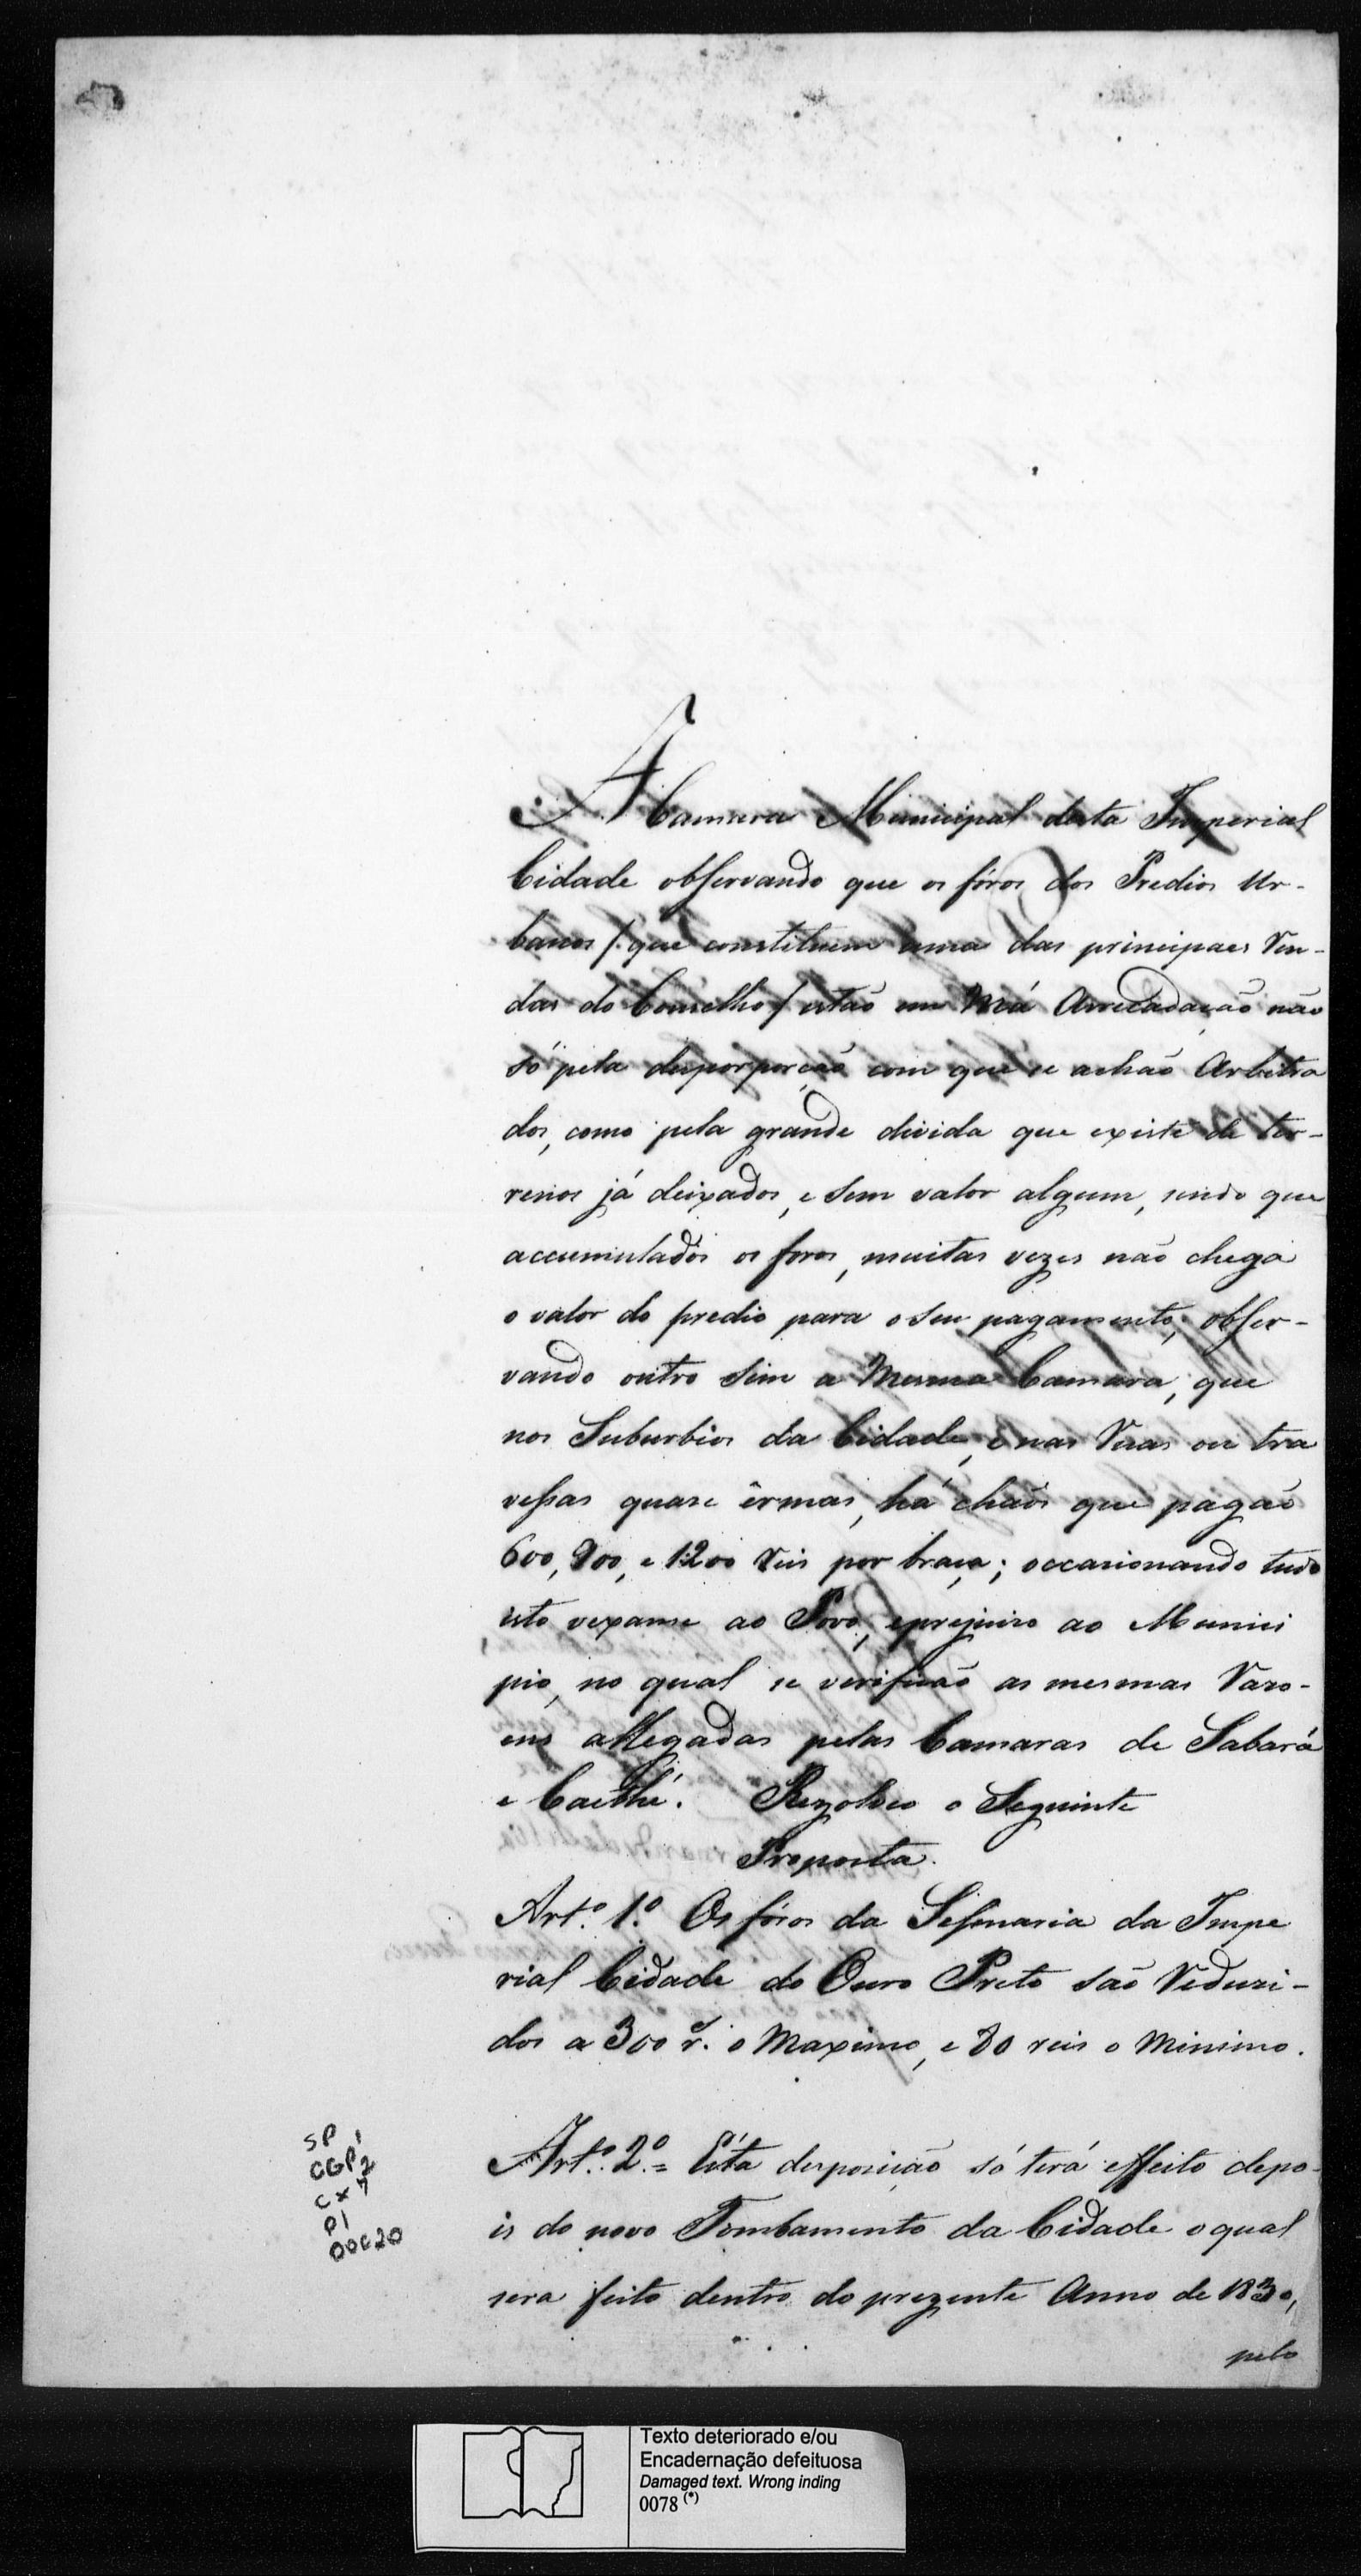 A Camara Municipal desta Imperial
Cidade observando que os fóros dos Predios Ur-
banos /que constituem uma das principaes Ren-
das do Conselho/ estão em Má Arrecadação não
só pela desporporção com que se achão Arbitra
dos, como pela grande divida que existe de ter-
renos já deixados, e sem valor algum, sendo que
accumulados os foros, muitas vezes não chega
o valor do predio para o seu pagamento; obser-
vando outro sim a Mesma Camara, que
nos Suburbios da Cidade, e nas Ruas ou tra
vessas quase êrmas, há chãos que pagão
600, 900, e 1200 reis por braça; occasionando tudo
isto vexame ao Povo, e prejuiso ao Munici
pio, no qual se verificão as mesmas Raso-
ens allegadas pelas Camaras de Sabará
e Caethé. Rezolveo o Seguinte
Proposta.
Art.º 1.º Os fóros da Sesmaria da Impe
rial Cidade do Ouro Preto são Redusi-
dos a 300 r.s o Maximo, e 80 reis o Minimo.
Art.º 2.º = Esta desposição só terá effeito depo-
is do novo Tombamento da Cidade o qual
sera feito dentro do prezente Anno de 1830,
pelo
SP
CGP 1/2
cx 7
P1
00620
Texto deteriorado e/ou
Encadernação defeituosa
Damaged text. Wrong inding
0078 (*)